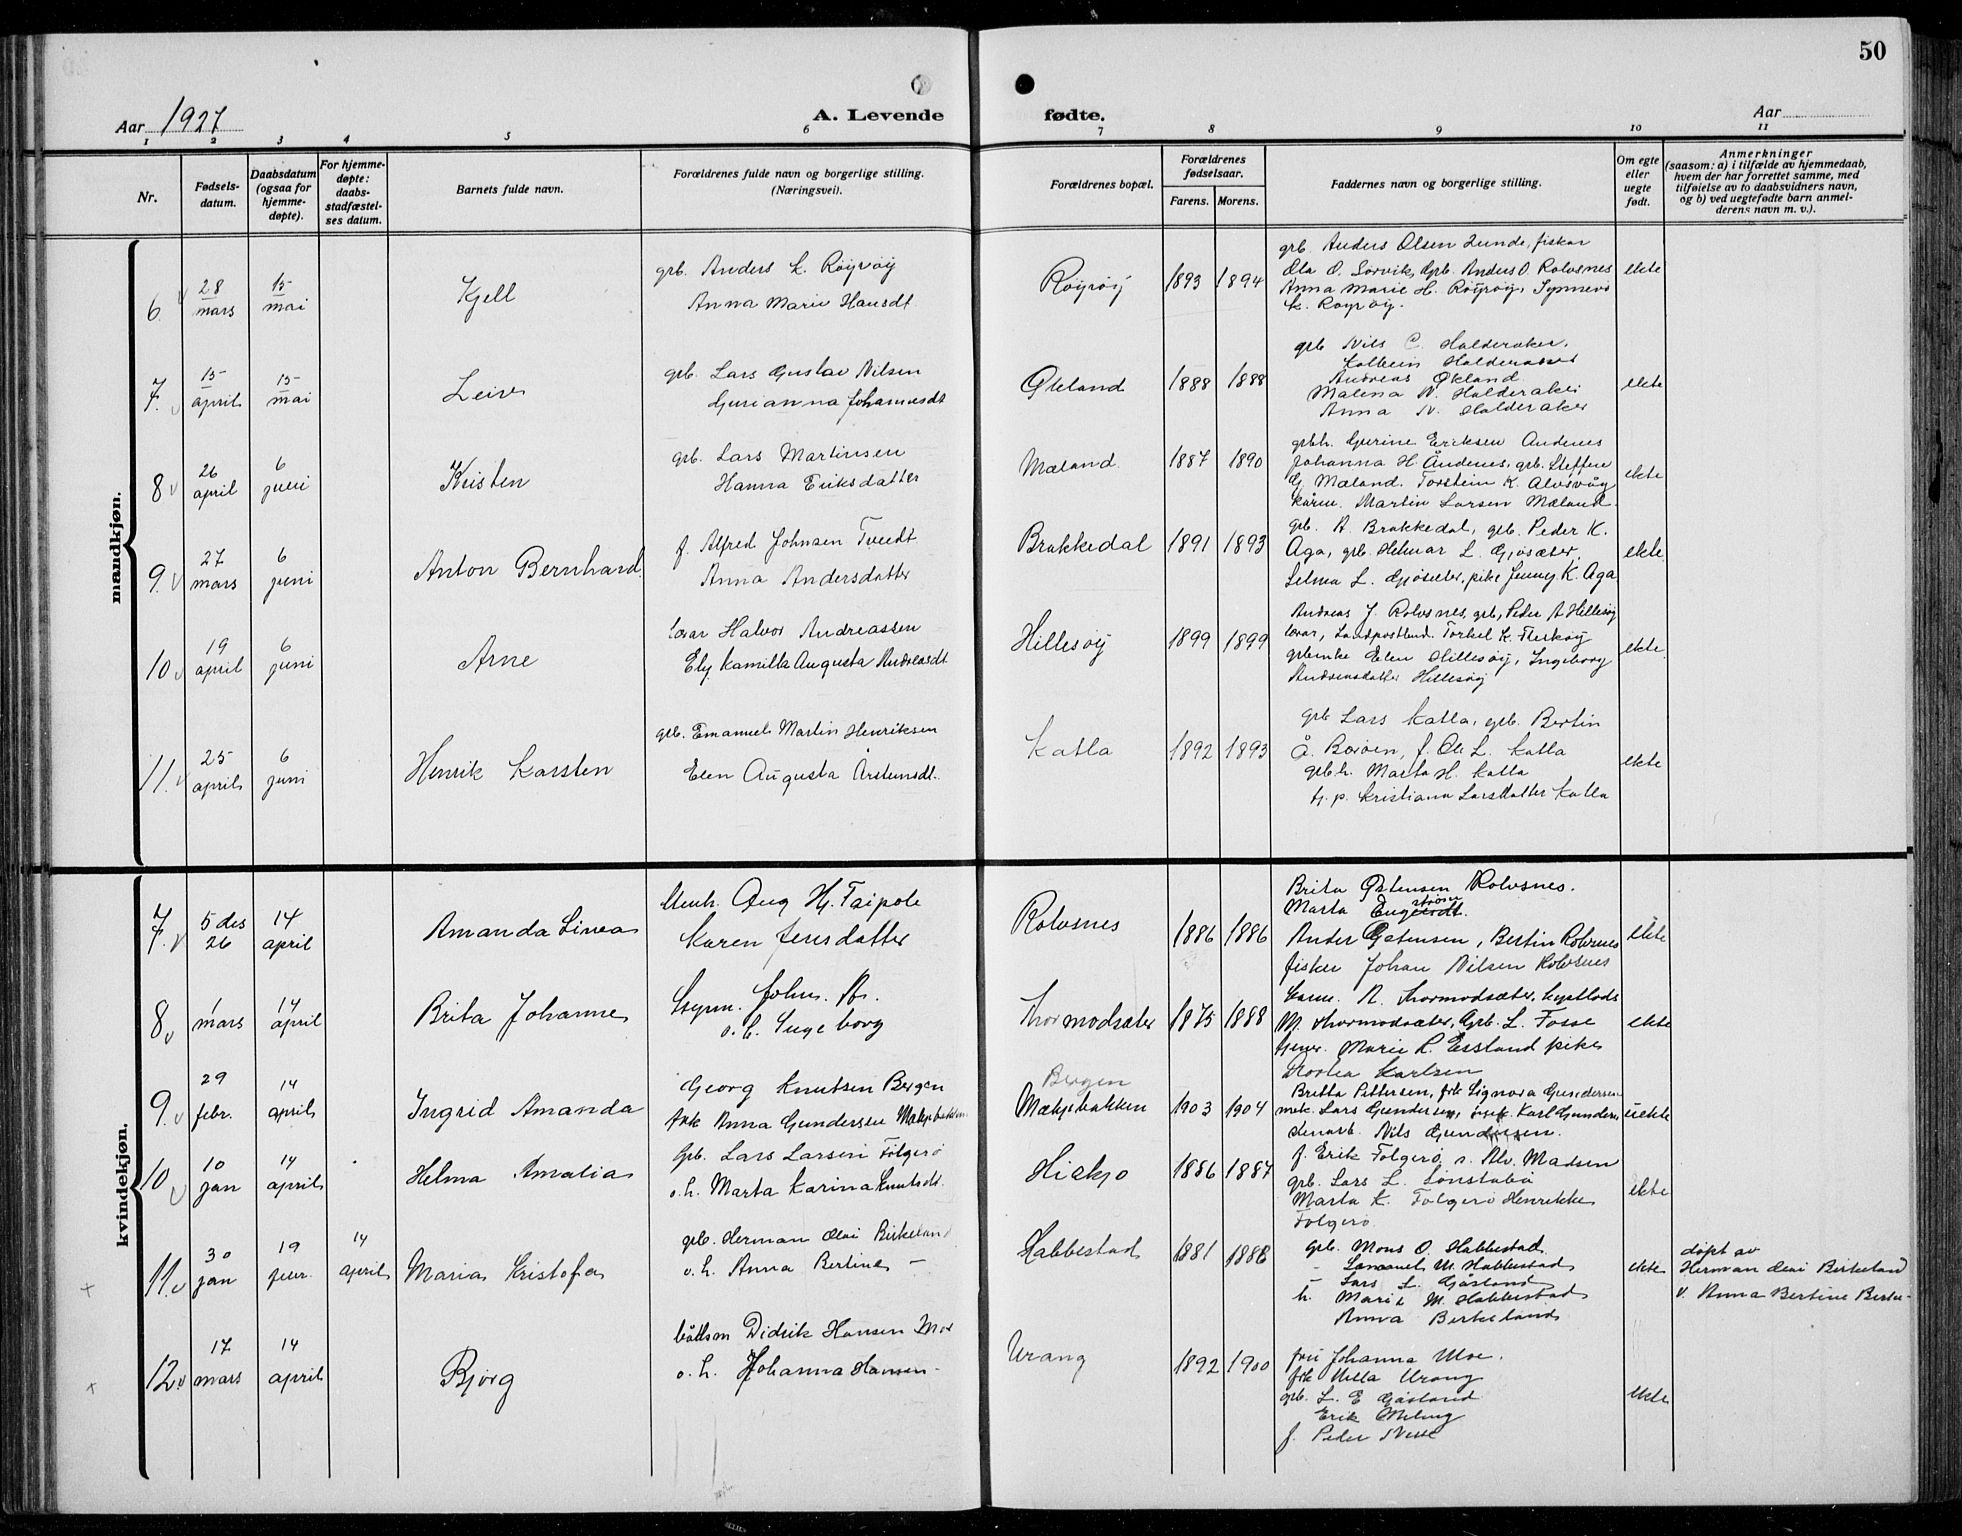 50
Aar 1927
A. Levende
fødte.
Aar
1 2 3 4 5 6 7 8 9 10 11
Nr.
Fødsels-
datum.
Daabsdatum
(ogsaa for
hjemme-
døpte).
For hjemme-
døpte:
daabs-
stadfæstel-
ses datum.
Barnets fulde navn.
Forældrenes fulde navn og borgerlige stilling.
(Næringsvei).
Forældrenes bopæl.
Forældrenes
fødselsaar.
Farens. Morens.
Faddernes navn og borgerlige stilling.
Om egte
eller
uegte
født.
Anmerkninger
(saasom: a) i tilfælde av hjemmedaab,
hvem der har forrettet samme, med
tilføielse av to daabsvidners navn,
og b) ved uegtefødte barn anmel-
derens navn m. v.).
mandkjøn.
6.
28
mars
15
mai
Kjell
grb. Anders K. Røyrøy
Anna Marie Hansdt
Røyrøy
1893 1894
grb. Anders Olsen Lunde, fisker
Ola O. Sørvik, Grb. Anders O. Rolvsnes
Anna Marie H. Røyrøy, Synneve
K. Røyrøy.
ekte
7.
15
april
15
mai
Leiv
grb. Lars Gustav Nilsen
Gurianna Johannesdt
Økland
1888 1888
grb Nils C. Halderaker,
Kolbein Halderaker
Andreas Økland
Malena N. Halderaker
Anna N. Halderaker
ekte
8
26
april
6
juni
Kristen
grb. Lars Martinsen
Hanna Eriksdatter
Mæland
1887 1890
grbh. Gurine Eriksen Andenes
Johanna H. Åndenes, grb. Steffen
G. Mæland. Torstein K. Alvsvåg
Martin Larsen Mæland.
ekte
9.
27
mars
6
juni
Anton Bernhard
f. Alfred Johnsen Tveidt
Anna Andersdatter
Brakkedal
1891 1893
grb. A. Brakkedal, grb. Peder K.
Aga, grb. Helmar L. Gjøsæter,
Selma L. Gjøsæter, pike Jenny K. Aga
ekte
10
19
april
6
juni
Arne
lærar Halvor Andreassen
Ely Kamilla Augusta Andreasdt
Hillesøy
1899 1899
Andreas J. Rolvsnes, grb, Peder A Hillesøy
lærar, Landpostbud. Torkel K.
Elen Hillesøy, Ingeborg
Andreasdatter Hillesøy
ekte.
11.
25
april
6
juni
Henrik Karsten
grb. Emanuel Martin Henriksen
Elen Augusta Arstensdt.
Katla
1892 1893
grb Lars Katla, grb. Bertin
f. Ole L. Katla
grb.h. Marta H. Katla
tj. p. Kristiana Larsdatter Katla
ekte
kvindekjøn.
7.
5 des
26
14
april
Amanda Linea
Aug Hj. Taipole
Karen Jensdatter
Rolvsnes
1886 1886
Brita Østensen Rolvsnes.
Marta
Ander Østensen, Bertin Rolvsnes
fisker Johan Nilsen Rolvsnes
ekte
8
1
mars
14
april
Brita Johanne
John. A.
o. h. Ingeborg
Thormodsæter
1875 1888
A. Thormodsæter,
M. Thormodsæter, Grb. L. Fosse
Marie L. Essland pike
Dorthea Karlsen
ekte
9.
29
febr.
14
april
Ingrid Amanda
Georg Knutsen Bergen
frk Anna Gundersen Mækjebakken
Bergen
Mækjebakken
1903 1904
Britta Pettersen, frk Signora Gundersen
Lars Gundersen, Karl Gunders.
Nils Gundersen.
uekte
10
10
jan
14
april
Helma Amalia
Grb. Lars Larsen Folgerø
o. h. Marta Karina Knutsdt.
Hiskjo
1886 1887
f. Erik Folgerø, Madsen
grb. Lars L. Lønstabø
Marta K. Folgerø Henrikke
Folgerø
ekte
11.
30
jan
19
febr.
14
april
Maria Kristofa
grb. Herman Olai Birkeland
o. h. Anna Bertine –
Habbestad
1881 1888
grb. Mons O. Habbestad
- Samuel M. Habbestad
- Lars L. Gåsland
h. Marie M. Habbestad
Anna Birkeland
ekte
døpt av
Herman Olai Birkeland
v. Anna Bertine Birke-
12.
17
mars
14
april
Bjørg
båtsm Didrik Hansen Moe
o. h. Johanna Hansen -
Urang
1892 1900
fru Johanna Moe.
frk Urang
grb. L. E Gåsland
Erik Meling
f. Peder Nesse
ekte